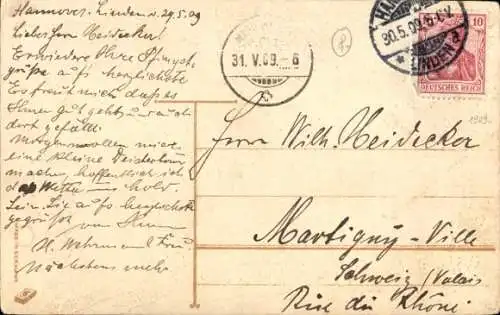 Hannover-Linden d. 29.5.09
Lieber Herr Heidecker!
Erwiedere Ihre Pfingst-
grüße aufs herzlichste
Es freut mich daß es
Ihnen gut geht u. auch
dort gefällt.
Morgen wollen wir
eine kleine Deistertour
machen, hoffentlich ist
das Wetter uns hold.
Seien Sie aufs herzlichste
gegrüßt von Ihrem
H. Wehrmann & Frau
Nächstens mehr
31. V. 09. – 6
HANNOVER
30.5.09. 5-6 V.
LINDEN
10
DEUTSCHES REICH
1909
Herrn Wilh. Heidecker
Martigny-Ville
Schweiz (Valais
Rue du Rhône